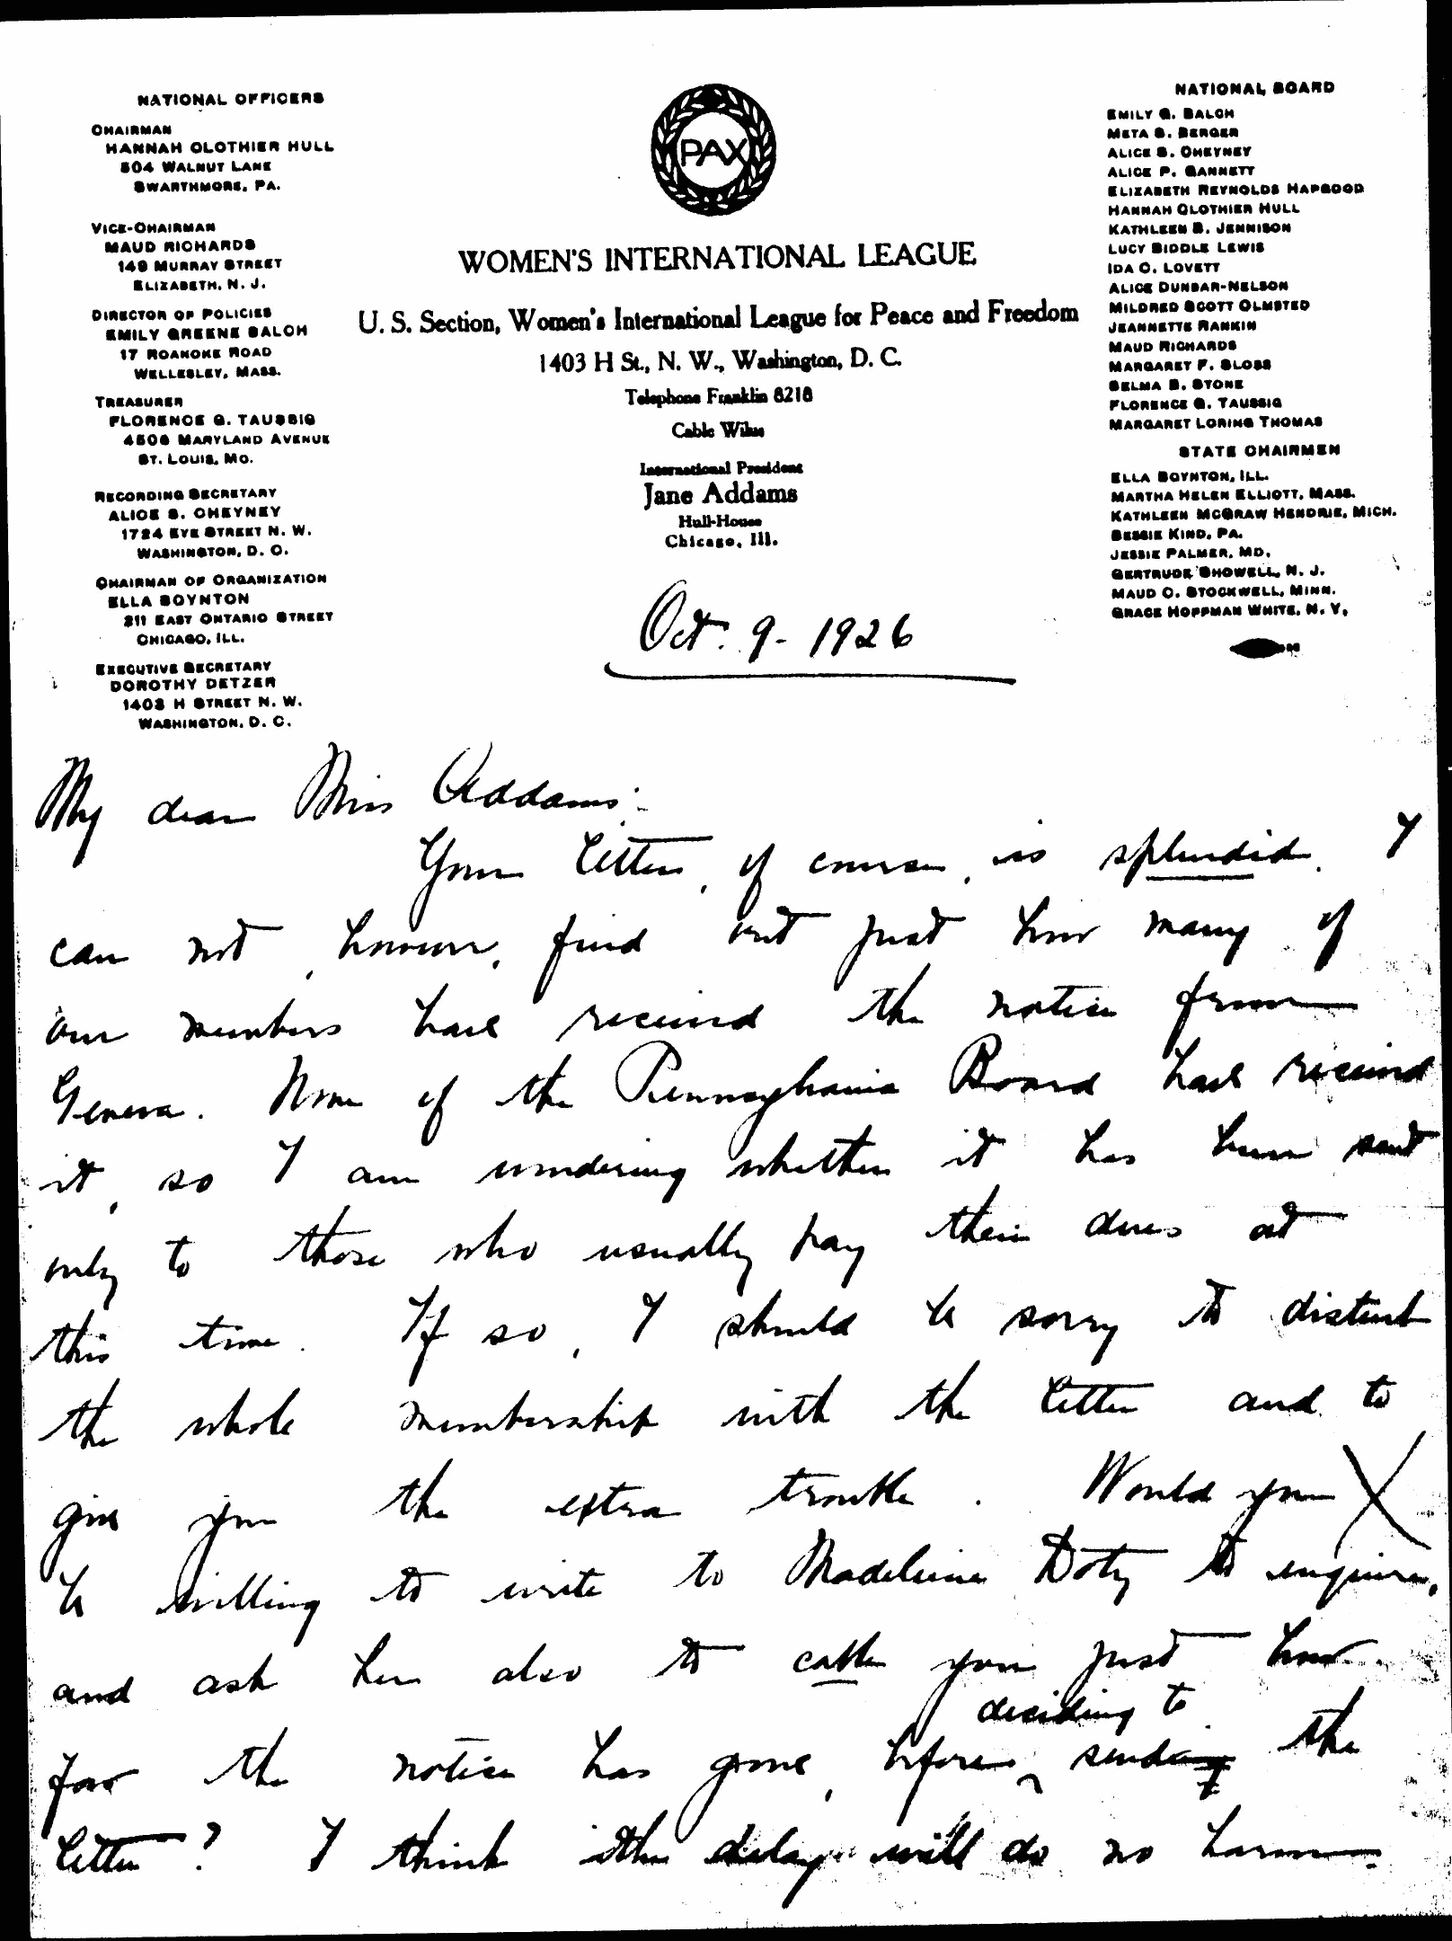 NATIONAL OFFICERS
CHAIRMAN
HANNAH CLOTHIER HULL
504 WALNUT LANE
SWARTHMORE, PA.
VICE-CHAIRMAN
MAUD RICHARDS
149 MURRAY STREET
ELIZABETH, N. J.
DIRECTOR OF POLICIES
EMILY GREENE BALCH
17 ROANOKE ROAD
WELLESLEY, MASS.
TREASURER
FLORENCE G. TAUSSIG
4506 MARYLAND AVENUE
ST. LOUIS, MO.
RECORDING SECRETARY
ALICE S. CHEYNEY
1724 EYE STREET N. W.
WASHINGTON, D. C.
CHAIRMAN OF ORGANIZATION
ELLA BOYNTON
211 EAST ONTARIO STREET
CHICAGO, ILL.
EXECUTIVE SECRETARY
DOROTHY DETZER
1403 H STREET N. W.
WASHINGTON, D. C.
PAX
WOMEN'S INTERNATIONAL LEAGUE
U. S. Section, Women's International League for Peace and Freedom
1403 H St., N. W., Washington, D. C.
Telephone Franklin 8218
Cable Wilus
International President
Jane Addams
Hull-House
Chicago, Ill.
NATIONAL BOARD
EMILY G. BALCH
META S. BERGER
ALICE S. CHEYNEY
ALICE P. GANNETT
ELIZABETH REYNOLDS HAPGOOD
HANNAH CLOTHIER HULL
KATHLEEN B. JENNISON
LUCY BIDDLE LEWIS
IDA C. LOVETT
ALICE DUNBAR-NELSON
MILDRED SCOTT OLMSTED
JEANNETTE RANKIN
MAUD RICHARDS
MARGARET F. SLOSS
SELMA B. STONE
FLORENCE G. TAUSSIG
MARGARET LORING THOMAS
STATE CHAIRMEN
ELLA BOYNTON, ILL.
MARTHA HELEN ELLIOTT, MASS.
KATHLEEN MCGRAW HENDRIE, MICH.
BESSIE KIND, PA.
JESSIE PALMER, MD.
GERTRUDE SHOWELL, N. J.
MAUD C. STOCKWELL, MINN.
GRACE HOFFMAN WHITE, N. Y.
Oct. 9 - 1926
My dear Miss Addams:-
Your letter, of course, is splendid. I
can not, however, find out just how many of
our members have received the notice from
Geneva. None of the Pennsylvania Board have received
it, so I am wondering whether it has been sent
only to those who usually pay their dues at
this time. If so, I should be sorry to disturb
the whole membership with the letter and to
give you the extra trouble. Would you
be willing to write to Madeleine Doty to enquire,
and ask her also to cable you just how
far the notice has gone, before deciding to sending the
letter? I think the delay will do no harm.